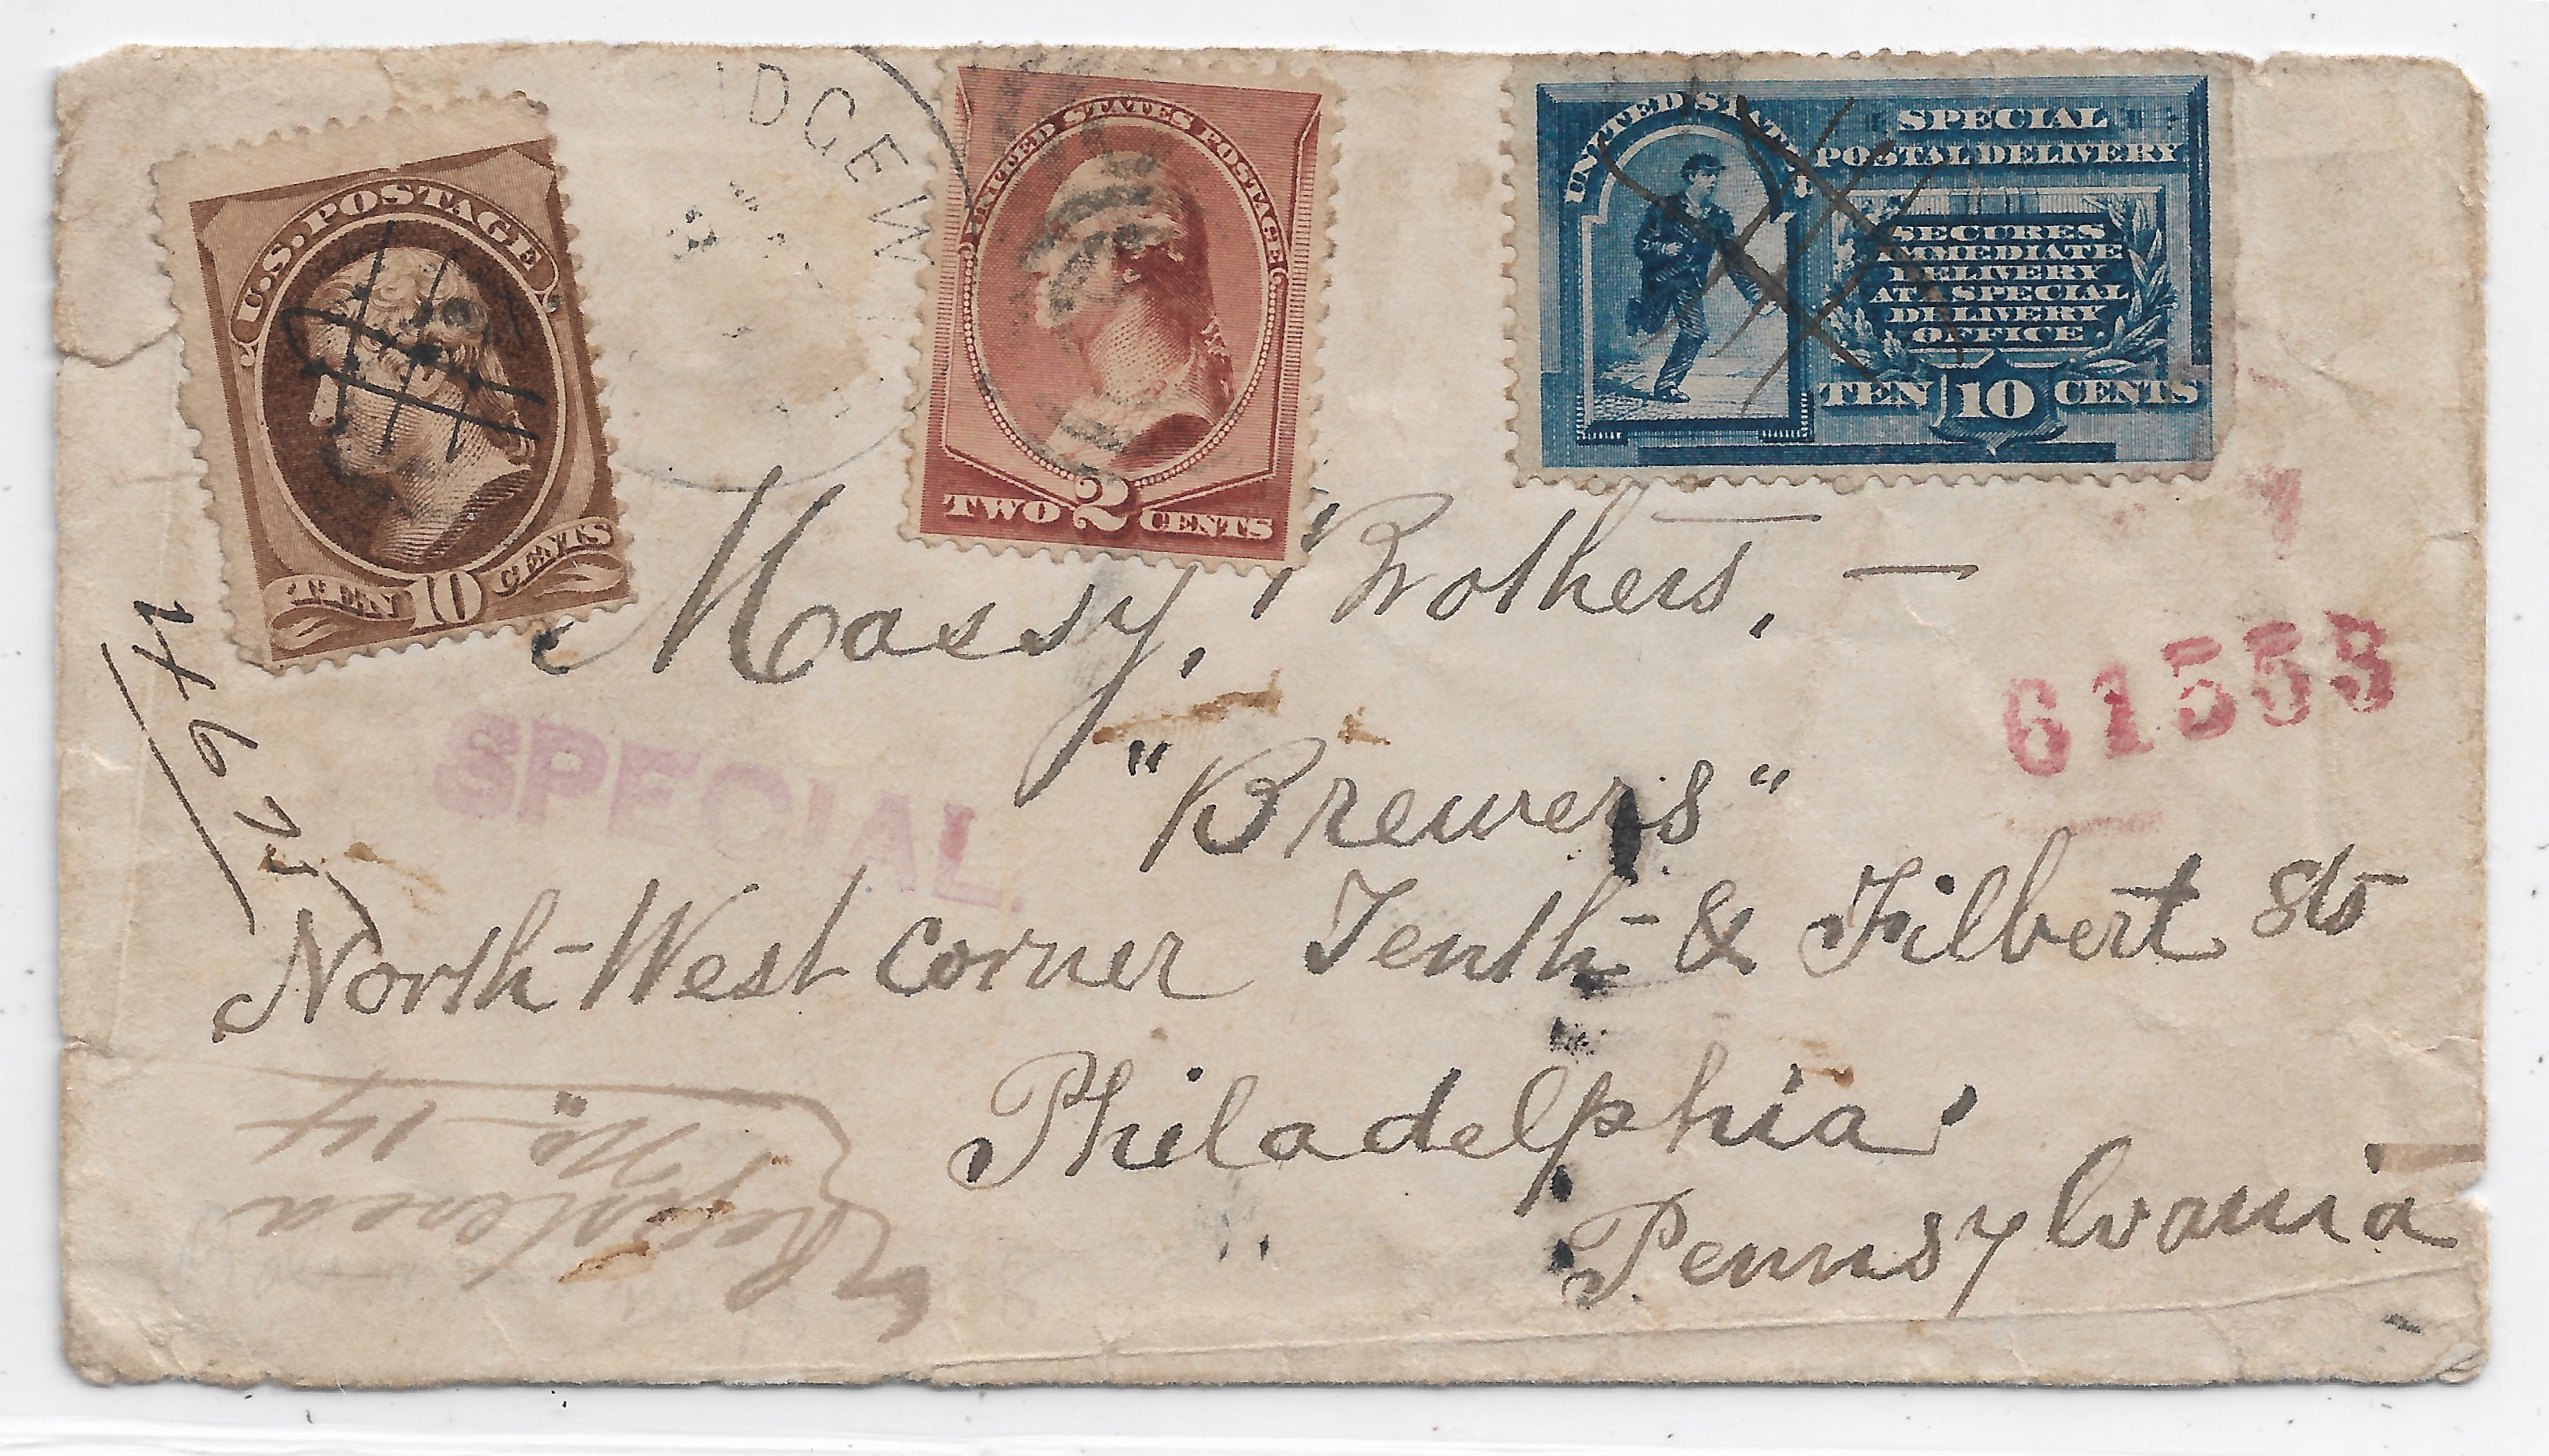 U.S. POSTAGE
TEN 10 CENTS
IDGEW
UNITED STATES POSTAGE
TWO 2 CENTS
UNITED STATES
SPECIAL
POSTAL DELIVERY
SECURES
IMMEDIATE
DELIVERY
AT A SPECIAL
DELIVERY
OFFICE.
TEN 10 CENTS
Massy, Brothers, —
61553
SPECIAL.
"Brewers"
North-West Corner Tenth & Filbert Sts
Philadelphia.
Pennsylvania
Registered
No. 14